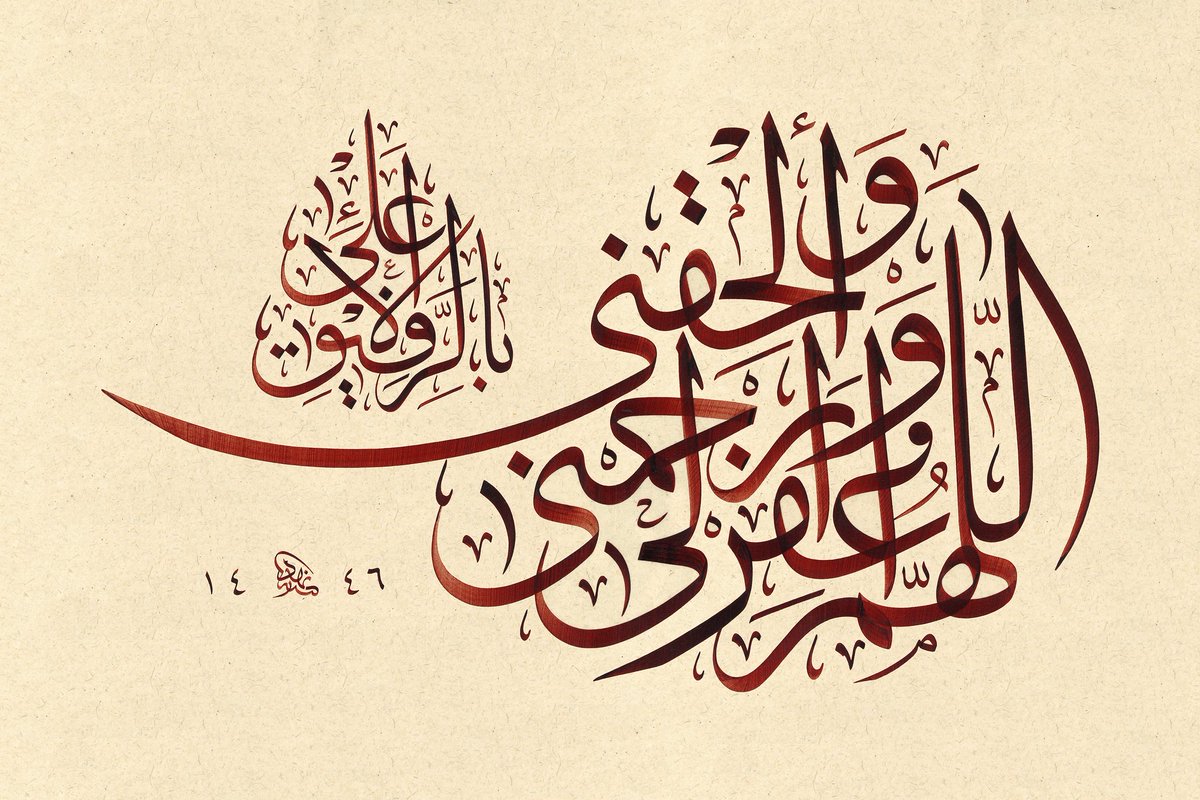 اللهم اغفر لي وارحمني وألحقني
بالرفيق الأعلى
١٤٤٦